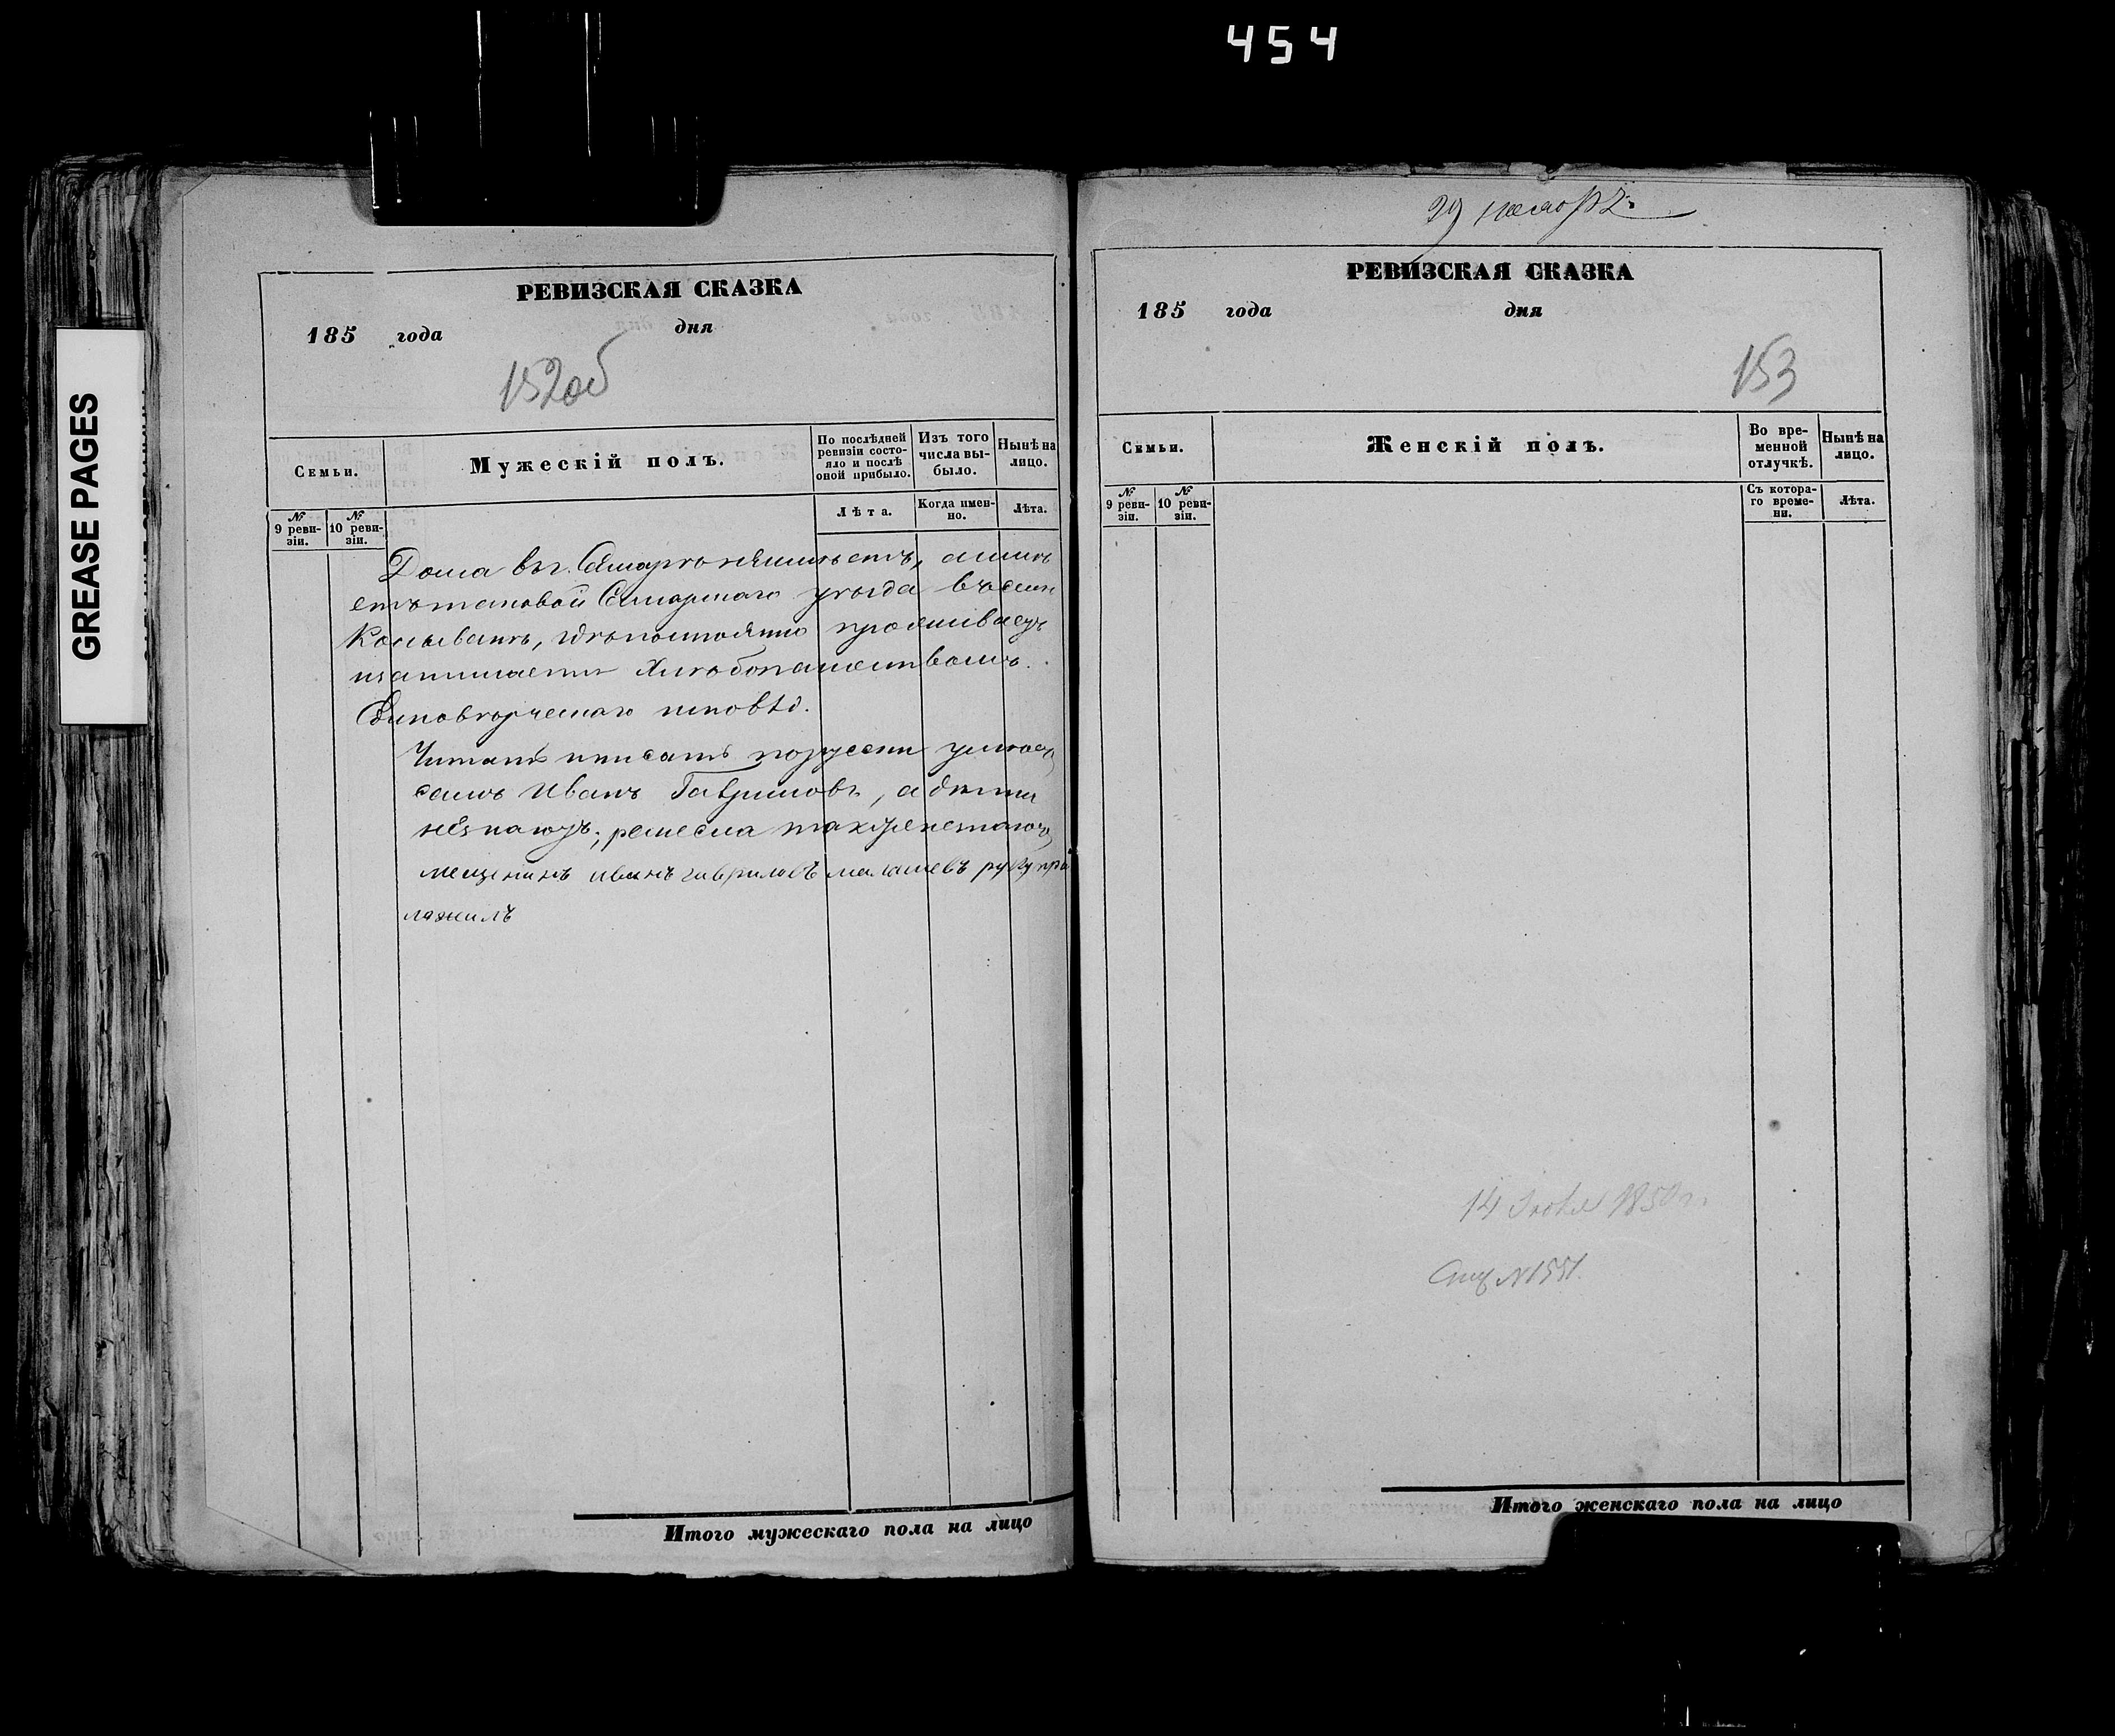 454
GREASE PAGES
РЕВИЗСКАЯ СКАЗКА
185 года дня
152об
Семьи.
Мужескій полъ.
По послѣдней ревизіи состояло и послѣ оной прибыло.
Изъ того числа выбыло.
Нынѣ на лицо.
№ 9 ревизіи.
№ 10 ревизіи.
Лѣта.
Когда именно.
Лѣта.
Дома въ г. Самарѣ неимѣетъ, а имѣ
етъ таковой Самарскаго уѣзда въ селѣ
Колывани, гдѣ постоянно проживаетъ
и занимается хлѣбопашествомъ.
Единовѣрческаго исповѣд.
Читать и писать порусски умѣетъ
самъ Иванъ Гавриловъ, а дѣти
незнаютъ; ремесла также незнаютъ
мещенинъ иванъ гавриловъ малашевъ руку при
ложилъ
Итого мужескаго пола на лицо
РЕВИЗСКАЯ СКАЗКА
185 года дня
153
Семьи.
Женскій полъ.
Во временной отлучкѣ.
Нынѣ на лицо.
№ 9 ревизіи.
№ 10 ревизіи.
Съ котораго времени.
Лѣта.
14 Июля 1850 г.
№1551.
Итого женскаго пола на лицо